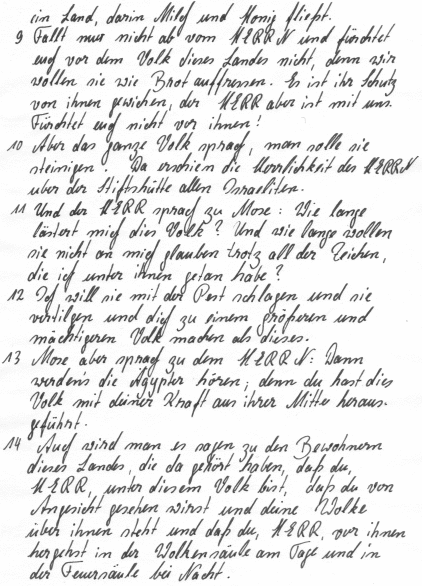 ein Land, darin Milch und Honig fließt.
9 Fallt nur nicht ab vom HERRN und fürchtet
euch vor dem Volk dieses Landes nicht, denn wir
wollen sie wie Brot auffressen. Es ist ihr Schutz
von ihnen gewichen, der HERR aber ist mit uns.
Fürchtet euch nicht vor ihnen!
10 Aber das ganze Volk sprach, man solle sie
steinigen. Da erschien die Herrlichkeit des HERRN
über der Stiftshütte allen Israeliten.
11 Und der HERR sprach zu Mose: Wie lange
lästert mich dies Volk? Und wie lange wollen
sie nicht an mich glauben trotz all der Zeichen,
die ich unter ihnen getan habe?
12 Ich will sie mit der Pest schlagen und sie
vertilgen und dich zu einem größeren und
mächtigeren Volk machen als dieses.
13 Mose aber sprach zu dem HERRN: Dann
werden's die Ägypter hören; denn du hast dies
Volk mit deiner Kraft aus ihrer Mitte heraus-
geführt.
14 Auch wird man es sagen zu den Bewohnern
dieses Landes, die da gehört haben, daß du,
HERR, unter diesem Volk bist, daß du von
Angesicht gesehen wirst und deine Wolke
über ihnen steht und daß du, HERR, vor ihnen
hergehst in der Wolkensäule am Tage und in
der Feuersäule bei Nacht.